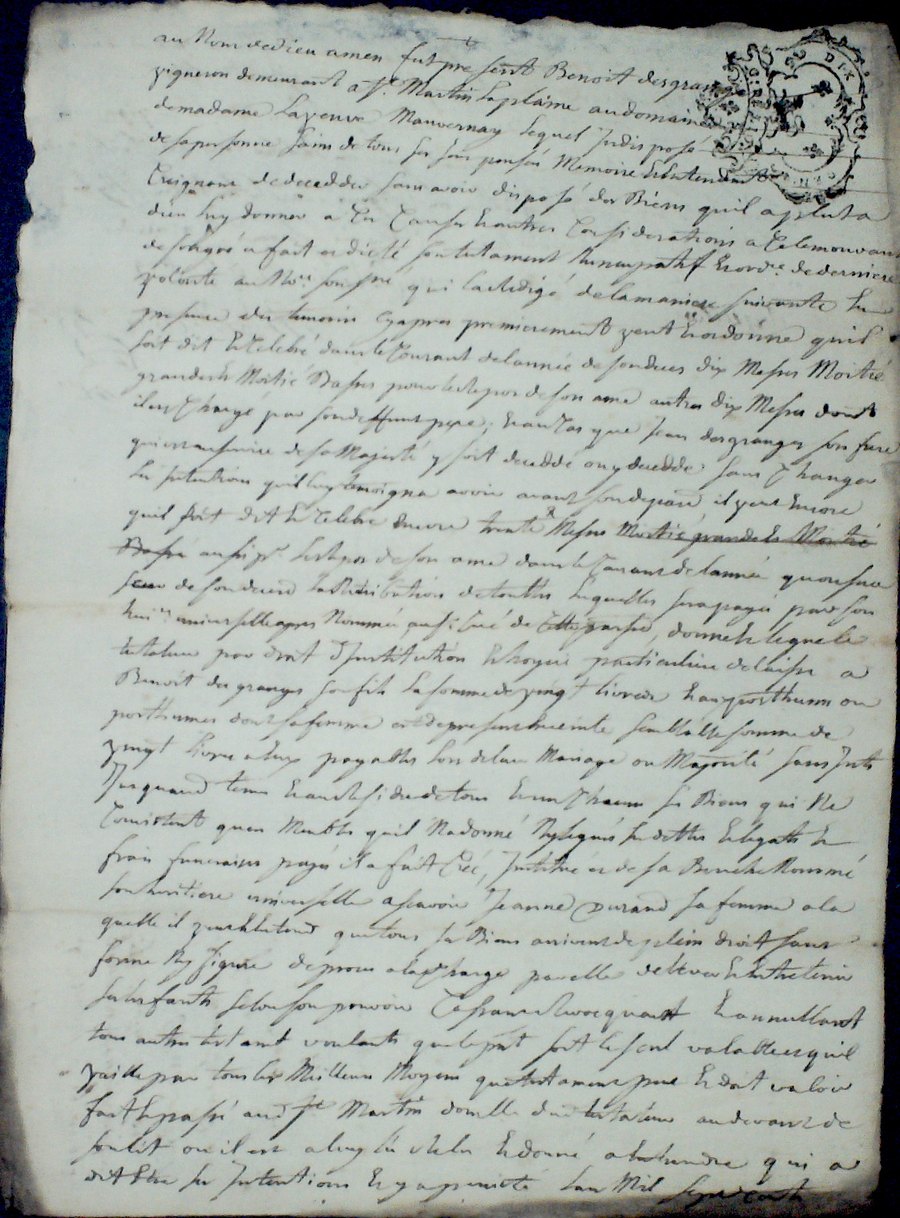 au Nom de dieu amen fut present Benoit desgranges
vigneron demeurant a St Martin Laplaine au domaine
de madame La veuve Mauvernay lequel Indisposé
de sa personne sain de tous ses sens pensée Memoire & Entendement
Craignant de decedder sans avoir disposé des Biens quil a plut a
dieu luy donner a Ces Causes & autres Considerations a Cele mouvant
de son gré a fait et dicté son testament Nuncupatif & ord.e de derniere
volonté au No.re sousne qui la redigé de la maniere suivante En
presence des temoins cy apres premierement veut & ordonne quil
soit dit & Celebré dans le Courant de lannée de son deces dix Messes Moitié
grandes & Moitié Basses pour le repos de son ame autres dix Messes dont
il est Chargé par son deffunt pere, & au Cas que Jean desgranges son frere
qui est au service de sa Majesté y soit deceddé ou y decedde sans Changer
les Intentions quil luy temoigna avoir avant son depart il veut Encore
quil soit dit & Celebré Encore trente Messes Moitié grandes & Moitié
Basses aussi pr le repos de son ame dans le Courant de lannée quon sera
seur de son deces la Retribution de touttes lesquelles sera payée par son
heri.re universelle apres Nommée, au sr Curé de Cette parsse, donne & legue le
testateur par droit dInstitution & hoyrie particuliere delaisse a
Benoit desgranges son fils la somme de vingt livres & au posthume ou
posthumes dont sa femme est de present Enceinte semblable somme de
vingt livres a Eux payables lors de leur Mariage ou Majorité sans Ints
Jusquaud tems & au Residu de tous & un Chacun ses Biens qui Ne
Consistent quen Meubles quil Na donné Ny legués ses dettes & legats &
frais funeraires payés il a fait Créé, Institué et de sa Bouche Nommé
son heritiere universelle a scavoir Jeanne Durand sa femme a la
quelle il veut & Entend que tous ses Biens arrivent de plein droit sans
forme Ny figure de proces a la Charge par elle delever & Entretenir
ses Enfants selon son pouvoir Cassant Revocquant & annullant
tous autres testamt voulant que le pnt soit le seul valable et quil
vaille par tous les Meilleurs Moyens que testament peut & doit valoir
fait & passé aud St Martin domlle dud testateur au devant de
son lit ou il est
dit Etre ses Intentions & y a persisté Lan Mil Sept Cent